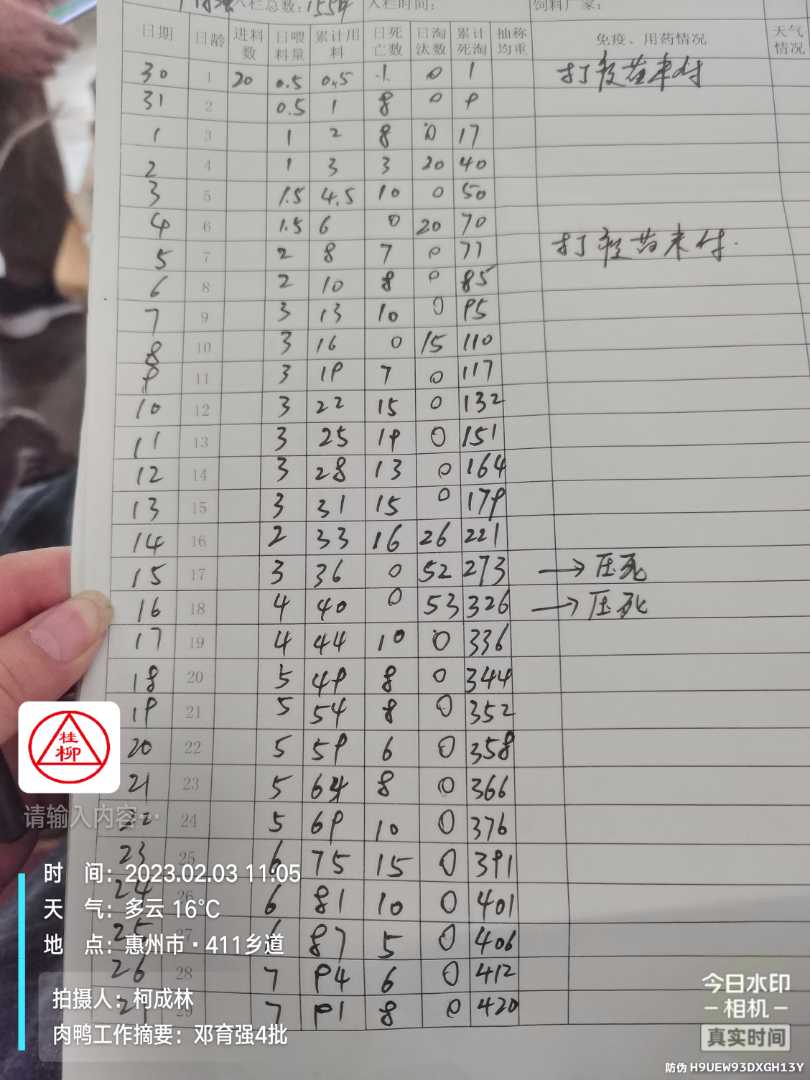 入栏总数：1554 入栏时间： 饲料厂家：
日期 日龄 进料数 日喂料量 累计用料 日死亡数 日淘汰数 累计死淘 抽称均重 免疫、用药情况 天气情况
30 1 20 0.5 0.5 1 0 1 打疫苗未付
31 2 0.5 1 8 0 9
1 3 1 2 8 0 17
2 4 1 3 3 20 40
3 5 1.5 4.5 10 0 50
4 6 1.5 6 0 20 70
5 7 2 8 7 0 77 打疫苗未付.
6 8 2 10 8 0 85
7 9 3 13 10 0 95
8 10 3 16 0 15 110
9 11 3 19 7 0 117
10 12 3 22 15 0 132
11 13 3 25 19 0 151
12 14 3 28 13 0 164
13 15 3 31 15 0 179
14 16 2 33 16 26 221
15 17 3 36 0 52 273 → 压死
16 18 4 40 0 53 326 → 压死
17 19 4 44 10 0 336
18 20 5 49 8 0 344
19 21 5 54 8 0 352
20 22 5 59 6 0 358
21 23 5 64 8 0 366
22 24 5 69 10 0 376
23 25 6 75 15 0 391
24 26 6 81 10 0 401
25 27 6 87 5 0 406
26 28 7 94 6 0 412
29 7 91 8 0 420
桂
柳
请输入内容…
时 间：2023.02.03 11:05
天 气：多云 16℃
地 点：惠州市·411乡道
拍摄人：柯成林
肉鸭工作摘要：邓育强4批
今日水印
-相机-
真实时间
防伪 H9UEW93DXGH13Y